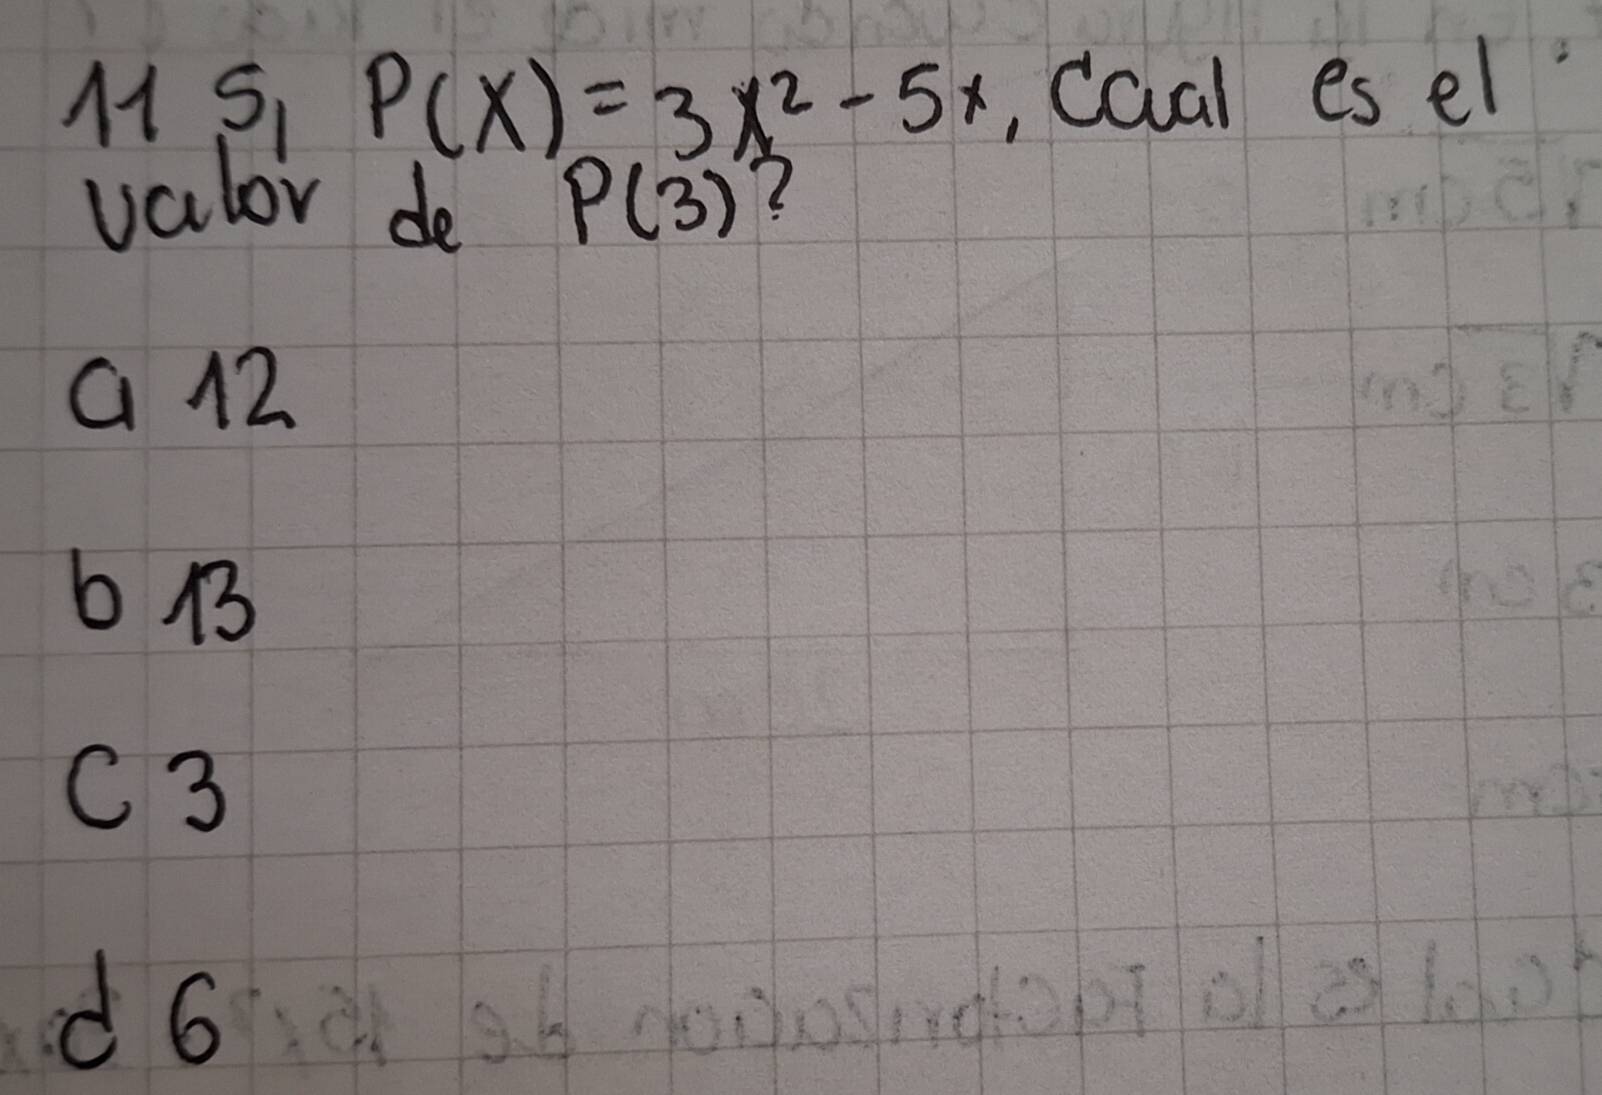 11 Si P(X)=3x²-5x, Caal es el
valor de P(3)?
a 12
b 13
C 3
d 6